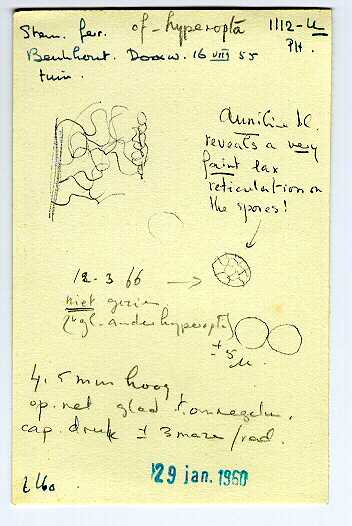 Stem. fer. of - hyperopta 1112-U
Benkhout. Doorw. 16 VIII 55 PH.
tuin.
Auniline bl.
reveals a very
faint lax
reticulation on
the spores!
12-3 66
niet gezien
(vgl. ander hyperopta)
± 5 µ.
4,5 mm hoog
op. net glad ± onregelm.
cap. druk ± 3 maze / rad.
29 jan. 1960